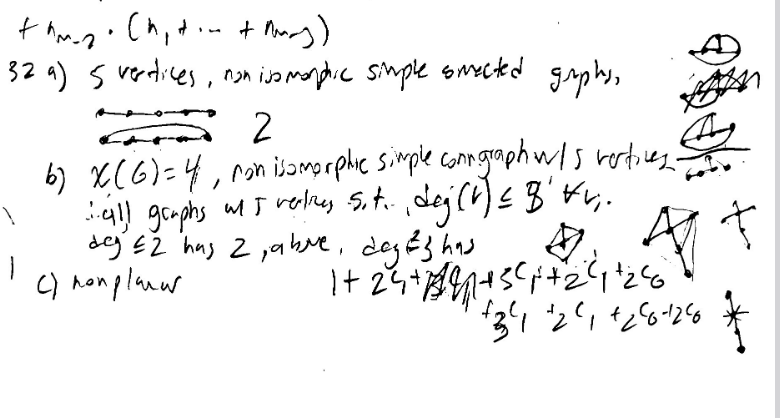 + n_{m-2} · (n_1 + ... + n_{m-3})
32 a) 5 vertices, non isomorphic simple connected graphs,
2
b) χ(G)=4, non isomorphic simple conn graph w/ 5 vertices
∴ all graphs w/ 5 vertices s.t. deg(v) ≤ 3 ∀v.
deg ≤2 has 2, above. deg ≤3 has
c) nonplanar
1 + 2C1 + 3C1 + 2C1 + 2C0
+ 3C1 + 2C1 + 2C0 + 2C0